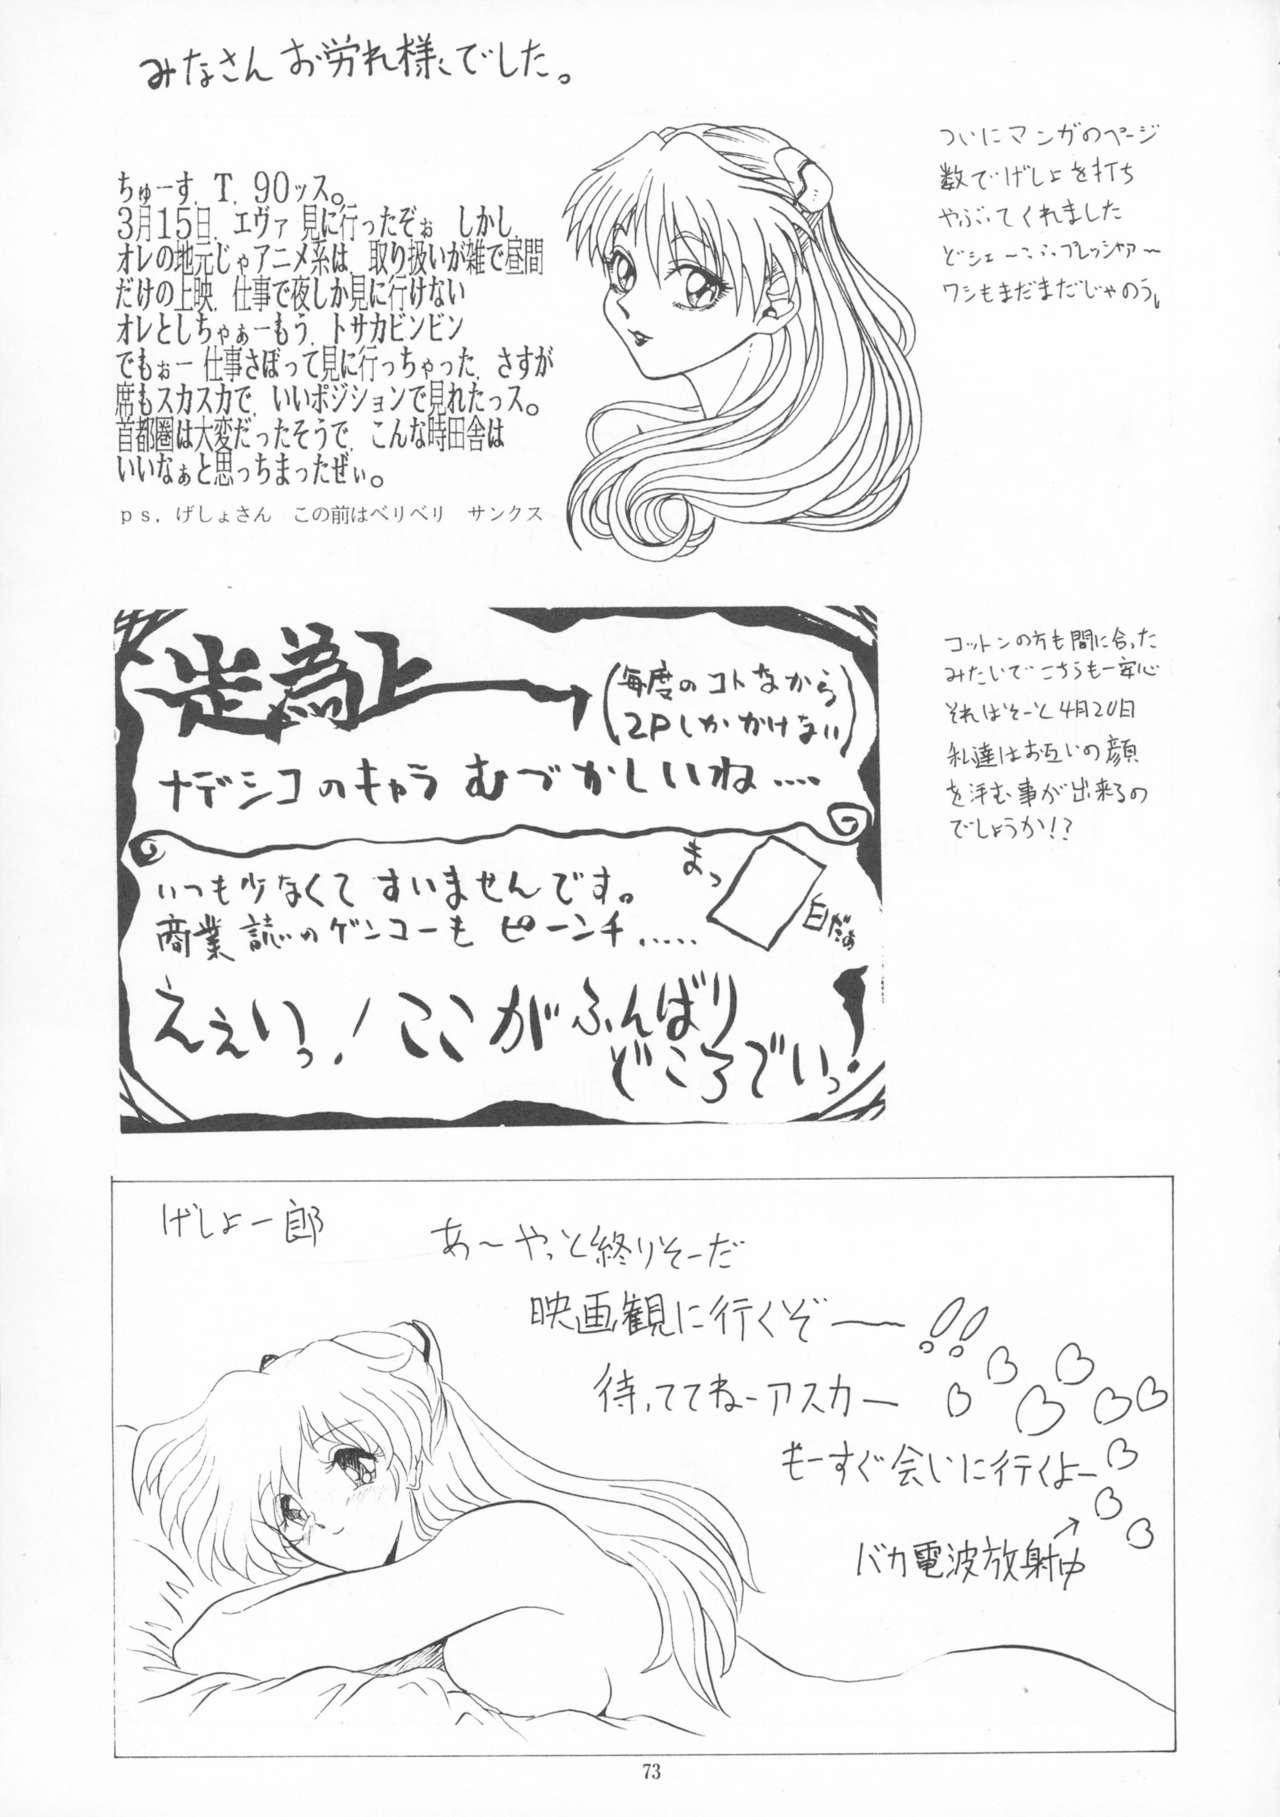 みなさんお労れ様でした。
ちゅーす、T. 90ッス。
3月15日、エヴァ 見に行ったぞぉ しかし、
オレの地元じゃアニメ系は、取り扱いが雑で昼間
だけの上映、仕事で夜しか見に行けない
オレとしちゃぁーもう、トサカビンビン
でもぉー 仕事さぼって見に行っちゃった、さすが
席もスカスカで、いいポジションで見れたっス。
首都圏は大変だったそうで、こんな時田舎は
いいなぁと思っちまったぜぃ。
ps, げしょさん この前はベリベリ サンクス
ついにマンガのページ
数でげしょを打ち
やぶってくれました
どシェーこふふプレッシャァ〜
ワシもまだまだじゃのう。
走為上
(毎度のコトながら
2Pしかかけない)
ナデシコのキャラ むづかしいね....
いつも少なくて すいませんです。
商業誌のゲンコーも ピーンチ.....
まっ
白だぁ
えぇいっ!ここがふんばり
どころでいっ!
コットンの方も間に合った
みたいでこちらも一安心
それはそーと4月20日
私達はお互いの顔
を拝む事が出来るの
でしょうか!?
げしょ一郎
あ〜やっと終りそーだ
映画観に行くぞ――!!
待っててねーアスカー
もーすぐ会いに行くよー
バカ電波放射中
73